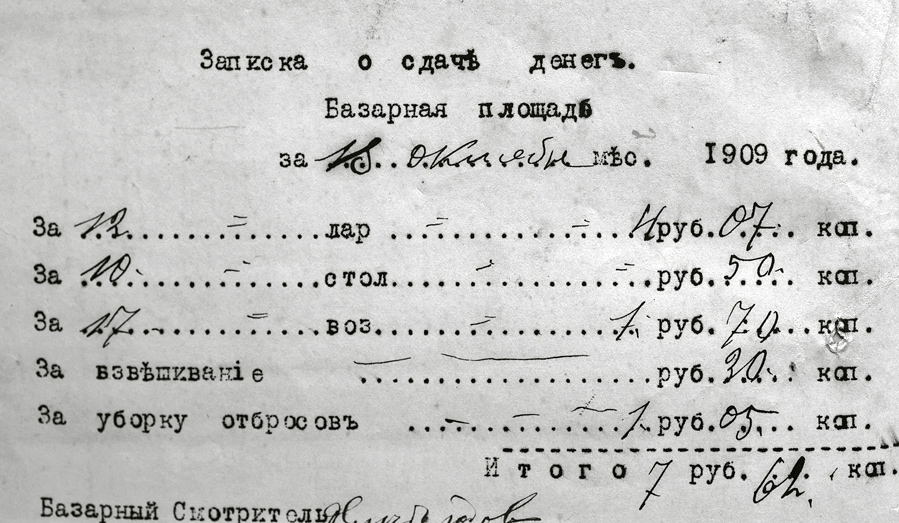 Записка о сдачѣ денегъ.
Базарная площадь
за 18 октября мѣс. 1909 года.
За 12 лар 4 руб. 07 коп.
За 10 стол руб. 50 коп.
За 17 воз 1 руб. 70 коп.
За взвѣшиваніе руб. 30 коп.
За уборку отбросовъ 1 руб. 05 коп.
Итого 7 руб. 62 коп.
Базарный Смотритель